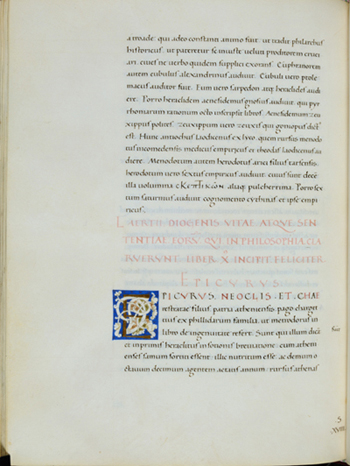 a troade: qui adeo constanti animo fuit: ut tradit philarchus
historicus. ut pateretur se iniuste uelut proditorem cruci
ari. cui' ne uerbo quidem supplici exorans. Euphranorem
autem eubulus alexandrinus audiuit. Eubuli uero ptole
maeus auditor fuit. Eum uero sarpedon atq; heraclides audi
ere. Porro heraclidem aenesidemus gnosius audiuit: qui pyr
rhoniarum rationum octo inscripsit libros. Aenesidemum zeu
xippus polites. zeuxippum uero zeuxis qui goniopus dict'
est. Hunc antiochus laodiceus ex lyco. quem rursus menodo
tus nicomedensis medicus empyricus et theodas laodiceus au
diere. Menodotum autem herodotus ariei filius tarsensis.
herodotum uero sextus empyricus audiuit. cuius sunt dece
illa uolumina σκεπτικῶν aliaq; pulcherrima. Porro sex
tum saturninus audiuit cognomento cythenas et ipse empi
ricus.
LAERTII DIOGENIS VITAE ATQVE SEN
TENTIAE EORV QVI IN PHILOSOPHIA CLA
RVERVNT LIBER X INCIPIT FELICITER
EPICVRVS
EPICVRVS NEOCLIS ET CHAE
restratae filius. patria atheniensis. pago
nius ex philaidarum familia. ut metrodorus in
libro de ingenuitate refert. Sunt qui illum dica
et inprimis heraclitus in sotionis breuiatione: cum atheni
enses samum sortiti essent: illic nutritum esse. ac demum o
ctauum decimum agentem aetatis annum: rursus athenas